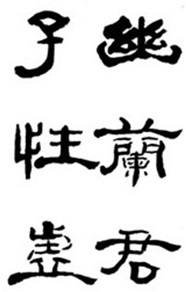 幽蘭君
子性